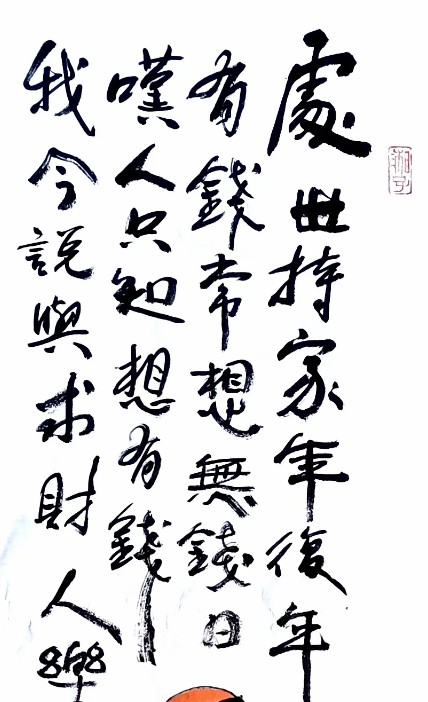 處世持家年復年
有錢常想無錢日
嘆人只知想有錢
我今說與求財人